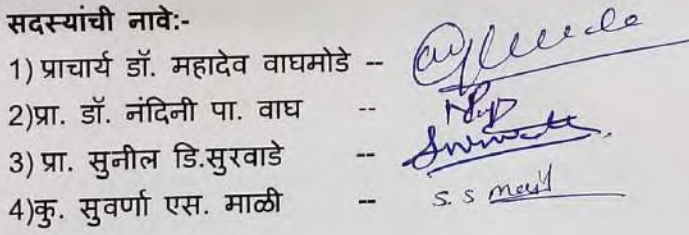 सदस्यांची नावे:-
1) प्राचार्य डॉ. महादेव वाघमोडे --
2)प्रा. डॉ. नंदिनी पा. वाघ --
3) प्रा. सुनील डि.सुरवाडे --
4)कु. सुवर्णा एस. माळी -- S. S Mali